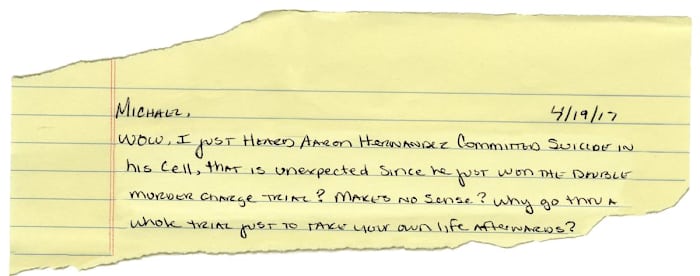 MICHAEL,
4/19/17
WOW, I JUST HEARD AARON HERNANDEZ COMMITTED SUICIDE IN
his Cell, THAT is unexpected since he just won THE DOUBLE
MURDER CHARGE TRIAL? MAKES NO Sense? Why go thru A
whole TRIAL JUST TO TAKE YOUR own life AfterWARDS?